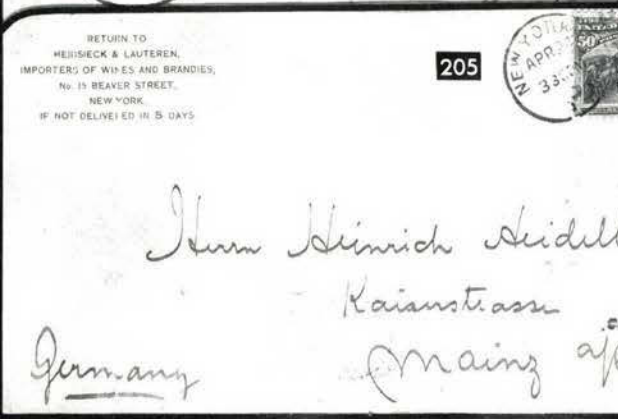 RETURN TO
HEIDSIECK & LAUTEREN,
IMPORTERS OF WINES AND BRANDIES,
No. 15 BEAVER STREET,
NEW YORK,
IF NOT DELIVERED IN 5 DAYS
205
NEW YORK
APR
50
Herrn Heinrich
Kaiserstrasse
Mainz a/
Germany